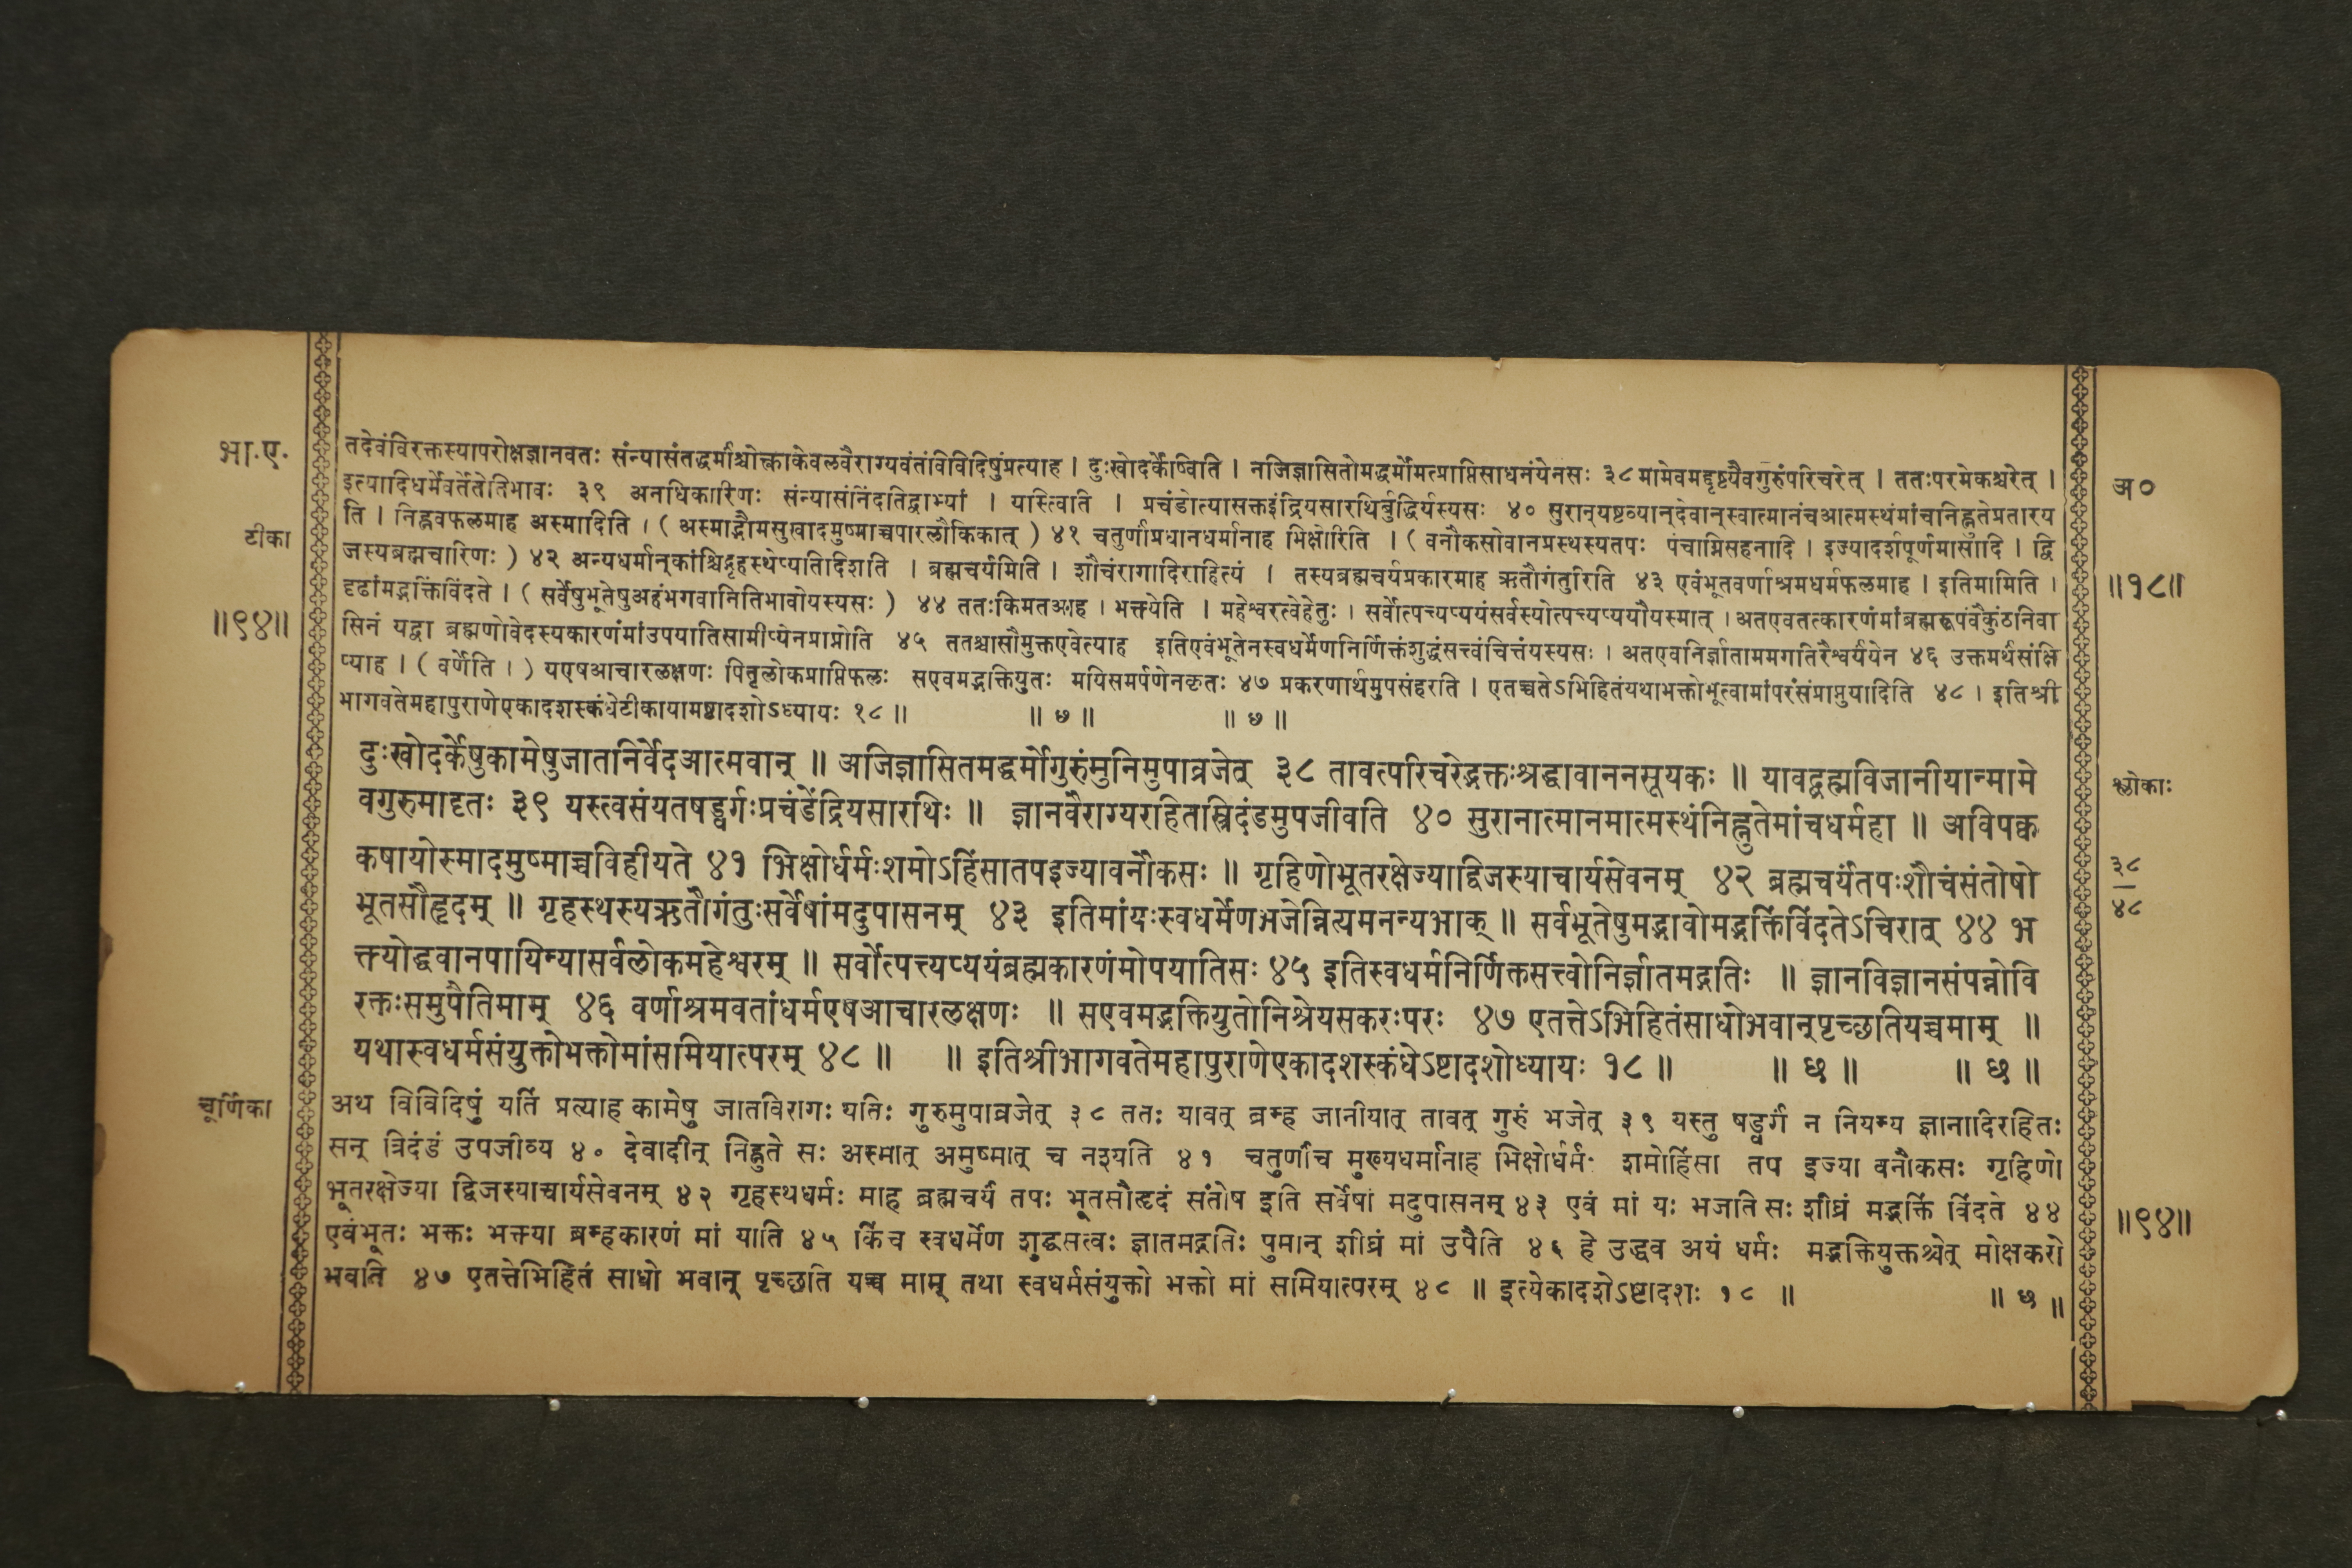 भा.ए.
टीका
॥९४॥
तदेवंविरक्तस्यापरोक्षज्ञानवतः संन्यासंतद्धर्मांश्चोत्काकेवलवैराग्यवंतंविविदिषुंप्रत्याह । दुःखोदर्केष्विति । नजिज्ञासितोमद्धर्मोमत्प्राप्तिसाधनंयेनसः ३८ मामेवमद्दृष्ट्यैवगुरुंपरिचरेत् । ततःपरमेकश्चरेत् ।
इत्यादिधर्मेवर्तेतेतिभावः ३९ अनधिकारिणः संन्यासंनिंदतिद्वाभ्यां । यस्त्विति । प्रचंडोत्यासक्तइंद्रियसारथिर्बुद्धिर्यस्यसः ४० सुरान्यष्टव्यान्देवान्स्वात्मानंचआत्मस्थंमांचनिह्नुतेप्रतारय
ति । निह्नवफलमाह अस्मादिति । ( अस्माद्भौमसुखादमुष्माच्चपारलौकिकात् ) ४१ चतुर्णांप्रधानधर्मानाह भिक्षोरिति । ( वनौकसोवानप्रस्थस्यतपः पंचाग्निसहनादि । इज्यादर्शपूर्णमासादि । द्वि
जस्यब्रह्मचारिणः ) ४२ अन्यधर्मान्कांश्चिद्गृहस्थेप्यतिदिशति । ब्रह्मचर्यमिति । शौचंरागादिराहित्यं । तस्यब्रह्मचर्यप्रकारमाह ऋतौगंतुरिति ४३ एवंभूतवर्णाश्रमधर्मफलमाह । इतिमामिति ।
दृढांमद्भक्तिंविंदते । ( सर्वेषुभूतेषुअहंभगवानितिभावोयस्यसः ) ४४ ततःकिमतआह । भक्त्येति । महेश्वरत्वेहेतुः । सर्वोत्पत्त्यप्ययंसर्वस्योत्पत्त्यप्ययौयस्मात् । अतएवतत्कारणंमांब्रह्मरूपंवैकुंठनिवा
सिनं यद्वा ब्रह्मणोवेदस्यकारणंमांउपयातिसामीप्येनप्राप्नोति ४५ ततश्चासौमुक्तएवेत्याह इतिएवंभूतेनस्वधर्मेणनिर्णिक्तंशुद्धंसत्त्वंचित्तंयस्यसः । अतएवनिर्ज्ञातामममगतिरैश्वर्यंयेन ४६ उक्तमर्थसंक्षि
प्याह । ( वर्णेति । ) यएषआचारलक्षणः पितृलोकप्राप्तिफलः सएवमद्भक्तियुतः मयिसमर्पणेनकृतः ४७ प्रकरणार्थमुपसंहरति । एतच्चतेऽभिहितंयथाभक्तोभूत्वामांपरंसंप्राप्नुयादिति ४८ । इतिश्री
भागवतेमहापुराणेएकादशस्कंधेटीकायामष्टादशोऽध्यायः १८ ॥ ॥ ७ ॥ ॥ ७ ॥
दुःखोदर्केषुकामेषुजातनिर्वेदआत्मवान् ॥ अजिज्ञासितमद्धर्मोगुरुंमुनिमुपाव्रजेत् ३८ तावत्परिचरेद्भक्तःश्रद्धावाननसूयकः ॥ यावद्ब्रह्मविजानीयान्मामे
वगुरुमादृतः ३९ यस्त्वसंयतषड्वर्गःप्रचंडेंद्रियसारथिः ॥ ज्ञानवैराग्यरहितस्त्रिदंडमुपजीवति ४० सुरानात्मानमात्मस्थंनिह्नुतेमांचधर्महा ॥ अविपक्व
कषायोस्मादमुष्माच्चविहीयते ४१ भिक्षोर्धर्मःशमोऽहिंसातपइज्यावनौकसः ॥ गृहिणोभूतरक्षेज्याद्विजस्याचार्यसेवनम् ४२ ब्रह्मचर्यंतपःशौचंसंतोषो
भूतसौहृदम् ॥ गृहस्थस्यऋतौगंतुःसर्वेषांमदुपासनम् ४३ इतिमांयःस्वधर्मेणभजेन्नित्यमनन्यभाक् ॥ सर्वभूतेषुमद्भावोमद्भक्तिंविंदतेऽचिरात् ४४ भ
क्त्योद्धवानपायिन्यासर्वलोकमहेश्वरम् ॥ सर्वोत्पत्त्यप्ययंब्रह्मकारणंमोपयातिसः ४५ इतिस्वधर्मनिर्णिक्तसत्त्वोनिर्ज्ञातमद्गतिः ॥ ज्ञानविज्ञानसंपन्नोवि
रक्तःसमुपैतिमाम् ४६ वर्णाश्रमवतांधर्मएषआचारलक्षणः ॥ सएवमद्भक्तियुतोनिश्रेयसकरःपरः ४७ एतत्तेऽभिहितंसाधोभवान्पृच्छतियच्चमाम् ॥
यथास्वधर्मसंयुक्तोभक्तोमांसमियात्परम् ४८ ॥ ॥ इतिश्रीभागवतेमहापुराणेएकादशस्कंधेऽष्टादशोध्यायः १८ ॥ ॥ छ ॥ ॥ छ ॥
चूर्णिका
अथ विविदिषुं यतिं प्रत्याह कामेषु जातविरागः यतिः गुरुमुपाव्रजेत् ३८ ततः यावत् ब्रम्ह जानीयात् तावत् गुरुं भजेत् ३९ यस्तु षड्वर्गं न नियम्य ज्ञानादिरहितः
सन् त्रिदंडं उपजीव्य ४० देवादीन् निह्नुते सः अस्मात् अमुष्मात् च नश्यति ४१ चतुर्णांच मुख्यधर्मानाह भिक्षोर्धर्मः शमोहिंसा तप इज्या वनौकसः गृहिणो
भूतरक्षेज्या द्विजस्याचार्यसेवनम् ४२ गृहस्थधर्मः माह ब्रह्मचर्यं तपः भूतसौहृदं संतोष इति सर्वेषां मदुपासनम् ४३ एवं मां यः भजति सः शीघ्रं मद्भक्तिं विंदते ४४
एवंभूतः भक्तः भक्त्या ब्रम्हकारणं मां याति ४५ किंच स्वधर्मेण शुद्धसत्वः ज्ञातमद्गतिः पुमान् शीघ्रं मां उपैति ४६ हे उद्धव अयं धर्मः मद्भक्तियुक्तश्चेत् मोक्षकरो
भवति ४७ एतत्तेभिहितं साधो भवान् पृच्छति यच्च माम् तथा स्वधर्मसंयुक्तो भक्तो मां समियात्परम् ४८ ॥ इत्येकादशेऽष्टादशः १८ ॥ ॥ छ ॥
अ०
॥१८॥
श्लोकाः
३८
४८
॥९४॥